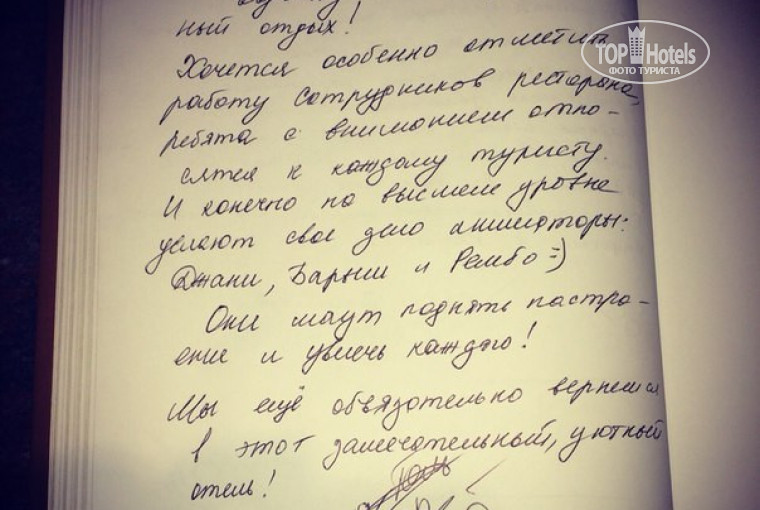 ный отдых!
Хочется особенно отметить
работу сотрудников ресторана,
ребята с вниманием отно-
сятся к каждому туристу.
И конечно на высшем уровне
делают свое дело аниматоры:
Джани, Барыш и Рембо =)
Они могут поднять настро-
ение и увлечь каждого!
Мы ещё обязательно вернемся
в этот замечательный, уютный
отель!
TOP Hotels
ФОТО ТУРИСТА